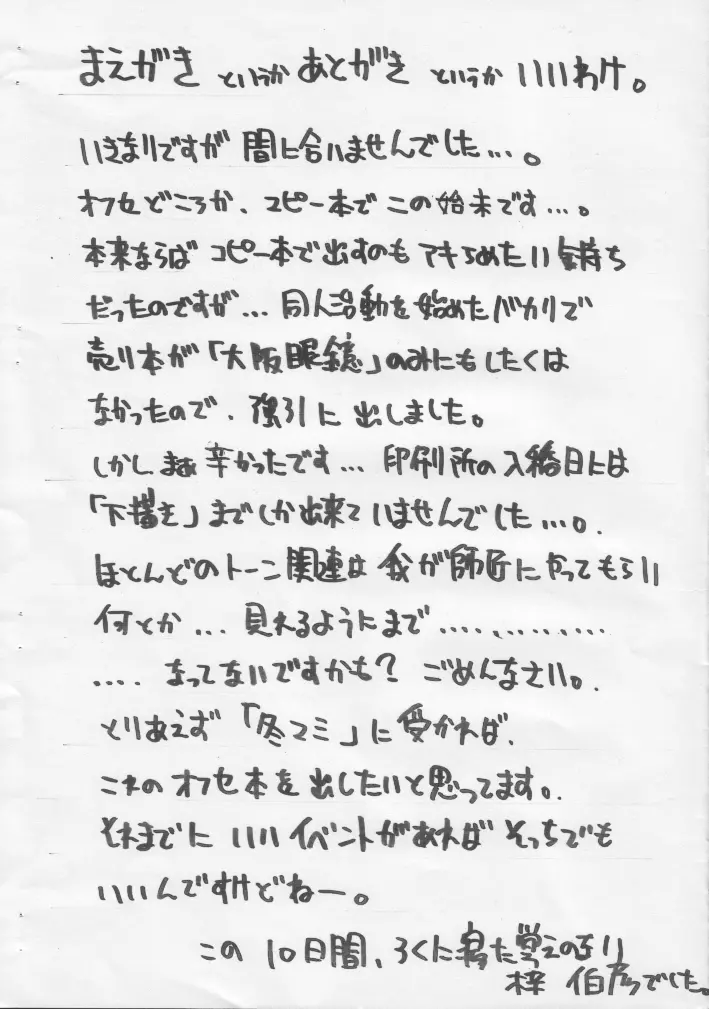 まえがき というか あとがき というか いいわけ。
いきなりですが 間に合いませんでした…。
オフセどころか、コピー本で この始末です…。
本来ならば コピー本で出すのも アキらめたい気持ち
だったのですが… 同人活動を始めたバカリで
売り本が「大阪眼鏡」のみにもしたくは
なかったので、強引に 出しました。
しかしまぁ 辛かったです… 印刷所の入稿日には
「下描き」までしか出来ていませんでした…。
ほとんどのトーン関連は 我が師匠にやってもらい
何とか… 見れるようにまで……………
…. なってないですかも? ごめんなさい。
とりあえず「冬コミ」に 受かれば、
これの オフセ本を 出したいと思ってます。
それまでに いいイベントがあれば そっちでも
いいんですけどねー。
この 10日間、ろくに寝た覚えのない
梓 でした。